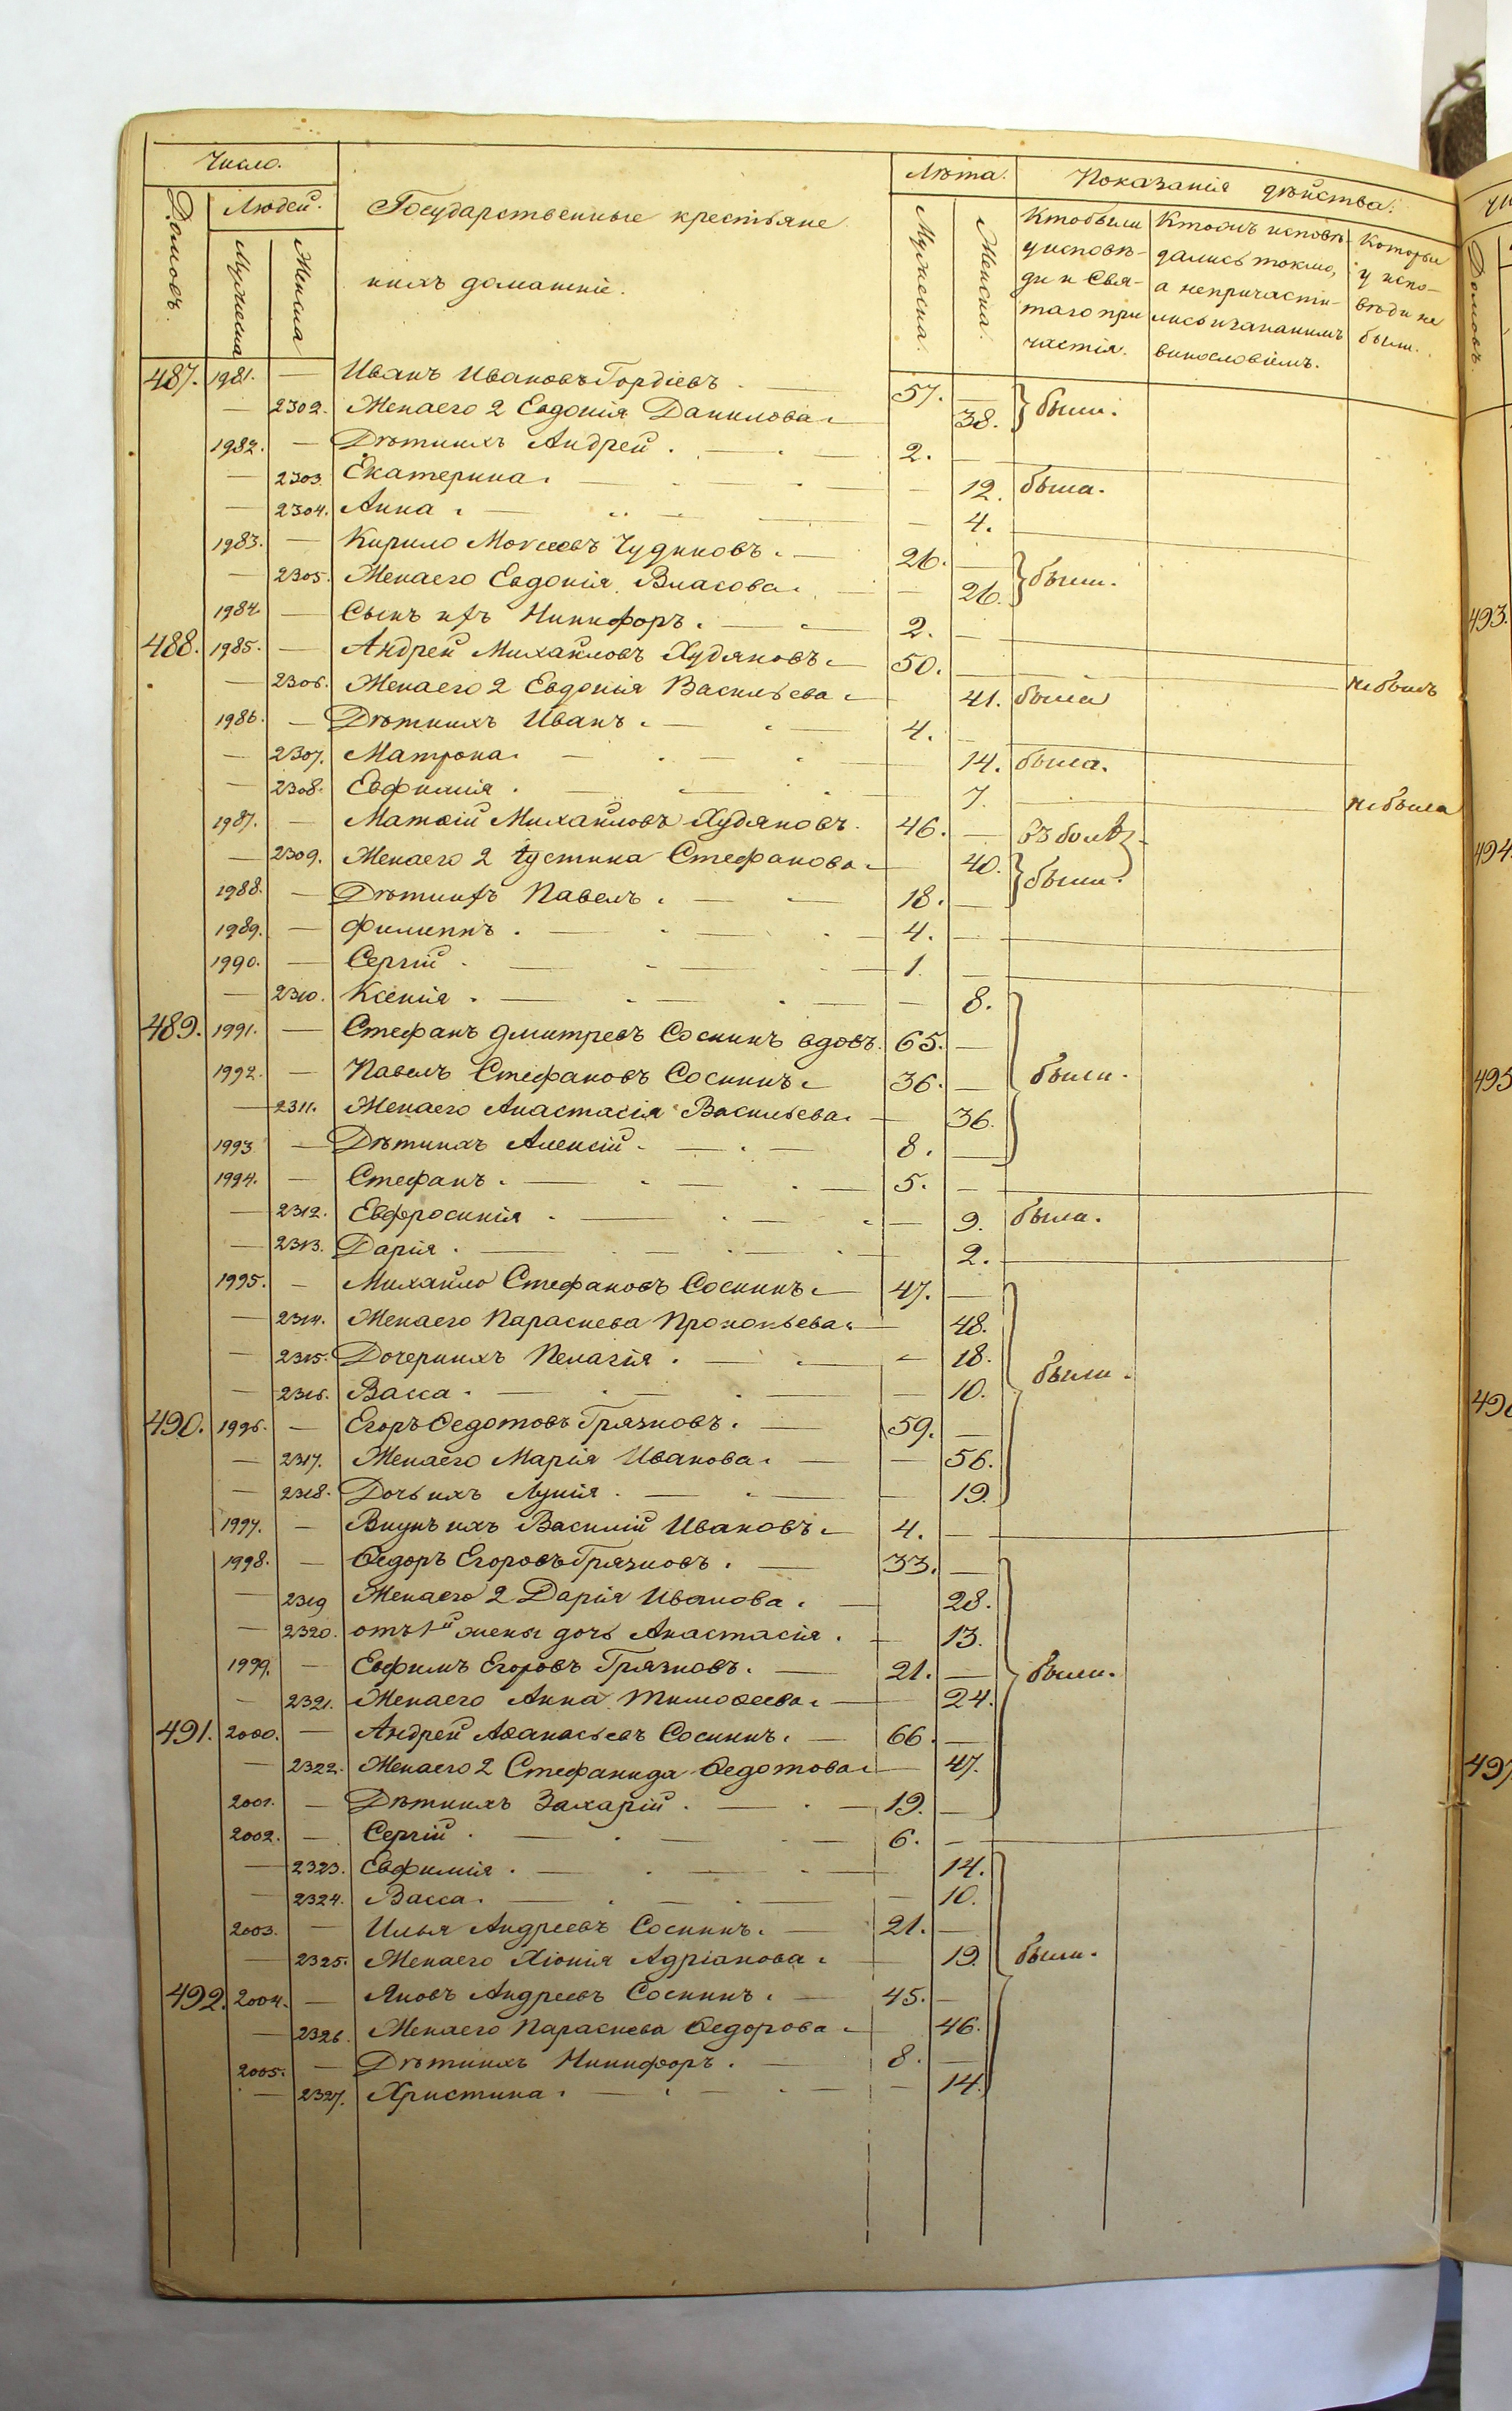 Число.
Лѣта.
Показанія дѣйства.
Людей.
Домовъ.
Мужеска
Женска
Государственные крестьяне
ихъ домашніе.
Мужеска.
Женска.
Кто были у исповѣди и Святаго причастія.
Кто онъ исповѣдались токмо, а не причастились и за какимъ винословіемъ.
Которые у исповѣди не были.
487. 1981. — Иванъ Ивановъ Гордѣевъ. — 57. —
— 2302. Жена его 2 Евдокія Данилова. — 38. были.
1982. — Дѣти ихъ Андрей. — 2. —
— 2303. Екатерина. — 12. была.
— 2304. Анна. — 4.
1983. — Кирило Моѵсеевъ Чудиновъ. — 26. —
— 2305. Жена его Евдокія Власова. — 26. были.
1984. — Сынъ ихъ Никифоръ. — 2. —
488. 1985. — Андрей Михайловъ Худяковъ. — 50. — не былъ
— 2306. Жена его 2 Евдокія Васильева. — 41. была
1986. — Дѣти ихъ Иванъ. — 4. —
— 2307. Матрона. — 14. была.
— 2308. Евфимія. — 7. не была
1987. — Матѳій Михайловъ Худяковъ. 46. —
— 2309. Жена его 2 Устина Стефанова. — 40. были.
1988. — Дѣти ихъ Павелъ. — 18. —
1989. — Филиппъ. — 4. —
1990. — Сергій. — 1. —
— 2310. Ксенія. — 8.
489. 1991. — Стефанъ Дмитревъ Соснинъ вдовъ. 65. —
1992. — Павелъ Стефановъ Соснинъ. 36. — были.
— 2311. Жена его Анастасія Васильева. — 36.
1993 — Дѣти ихъ Алексій. — 8. —
1994. — Стефанъ. — 5. —
— 2312. Евфросинія. — 9. была.
— 2313. Дарія. — 2.
1995. — Михайло Стефановъ Соснинъ. — 47. —
— 2314. Жена его Параскева Прокопьева. — 48.
— 2315. Дочери ихъ Пелагія. — 18.
— 2316. Васса. — 10. были.
490. 1996. — Егоръ Ѳедотовъ Грязновъ. — 59. —
— 2317. Жена его Марія Иванова. — 56.
— 2318. Дочь ихъ Лукія. — 19.
1997. — Внукъ ихъ Василій Ивановъ. — 4. —
1998. — Ѳедоръ Егоровъ Грязновъ. — 33. —
— 2319 Жена его 2 Дарія Иванова. — 28.
— 2320. отъ 1й жены дочь Анастасія. — 13.
1999. — Евфимъ Егоровъ Грязновъ. — 21. — были.
— 2321. Жена его Анна Тимоѳеева. — 24.
491. 2000. — Андрей Аѳанасьевъ Соснинъ. — 66. —
— 2322. Жена его 2 Стефанида Ѳедотова. — 47.
2001. — Дѣти ихъ Захарій. — 19. —
2002. — Сергій. — 6. —
— 2323. Евфимія. — 14.
— 2324. Васса. — 10.
2003. — Илья Андреевъ Соснинъ. — 21. —
— 2325. Жена его Хіонія Адріанова. — 19. были.
492. 2004. — Яковъ Андреевъ Соснинъ. — 45. —
— 2326. Жена его Параскева Ѳедорова — 46.
2005. — Дѣти ихъ Никифоръ. — 8. —
— 2327. Христина. — 14.
Домовъ.
493.
494.
495
497